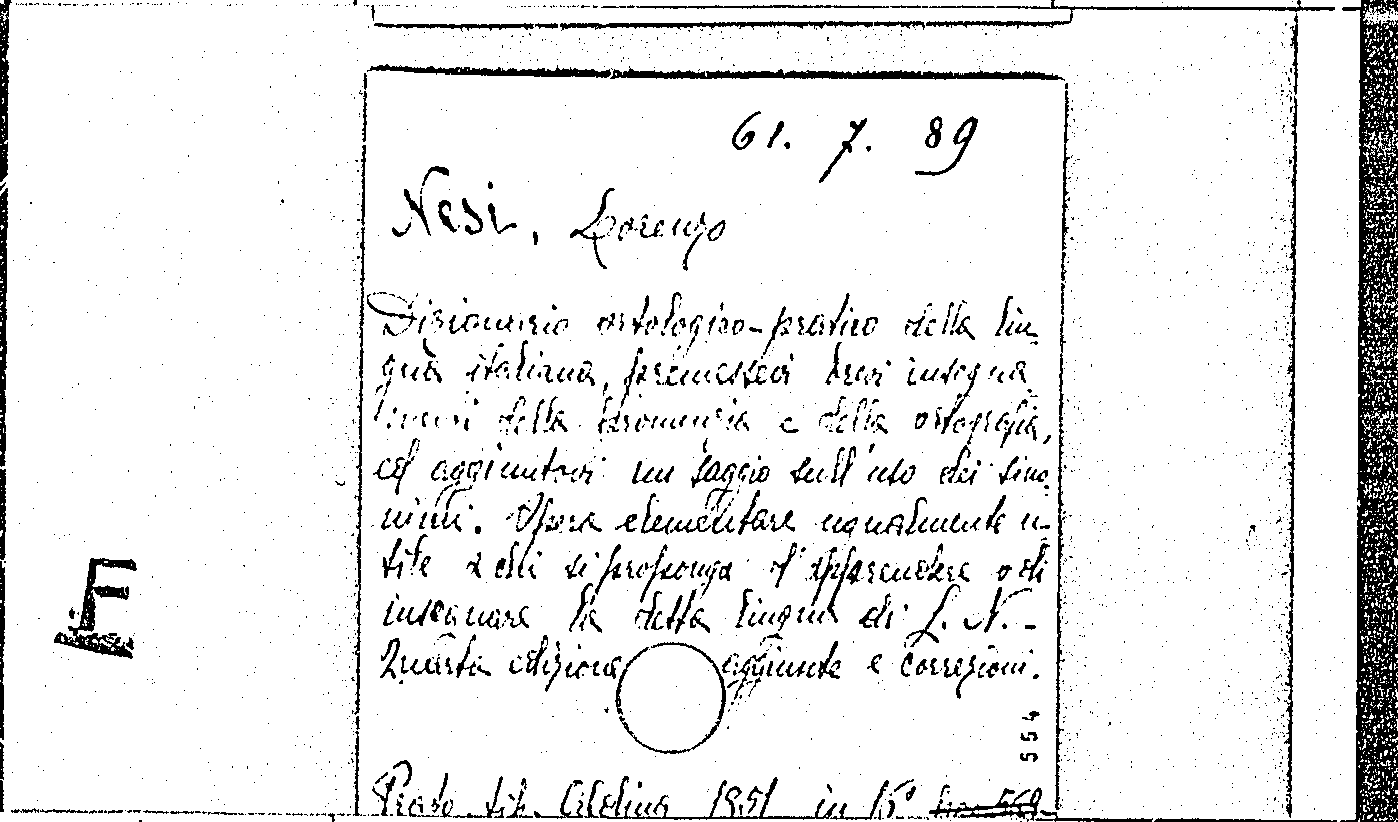 61. 7. 89
Nesi, Lorenzo
Dizionario ortologico-pratico della lin-
gua italiana, premessevi brevi insegna
menti della pronunzia e della ortografia,
ed aggiuntovi un saggio sull'uso dei sino-
nimi. Opera elementare ugualmente u-
tile a chi si proponga d'apprendere o di
insegnare la detta lingua di L. N. -
Quarta edizione aggiunte e correzioni.
554
Prato, tip. Aldina 1851 in 16°
F